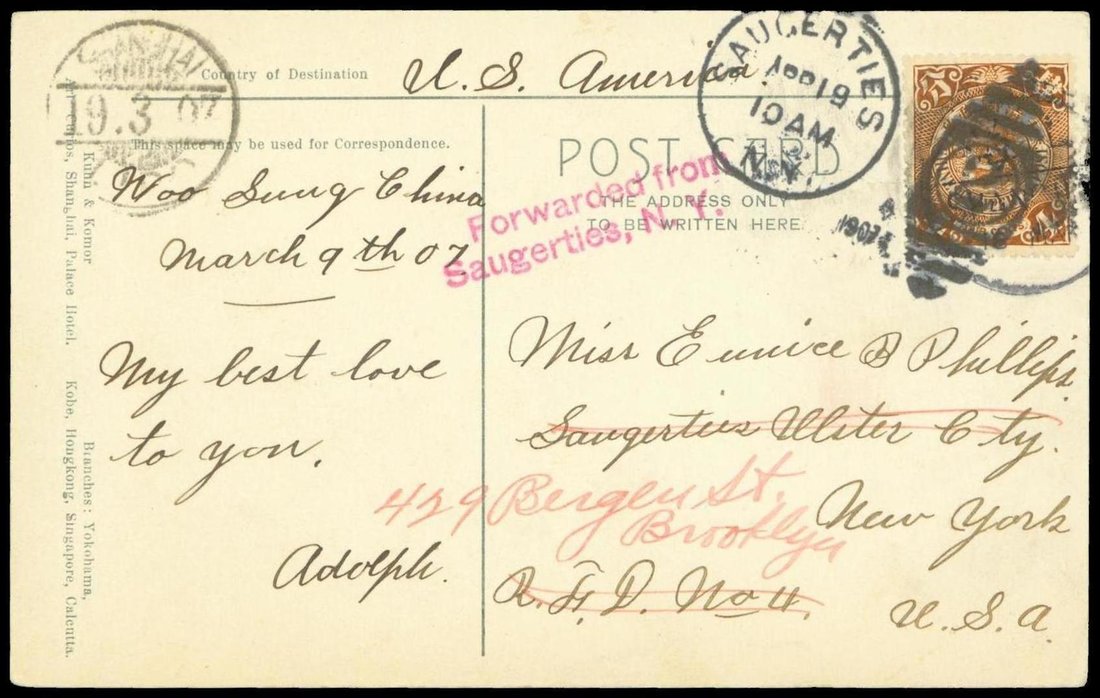 SHANGHAI
19.3 07
Country of Destination
U. S. America
SAUGERTIES
APR 19
10 AM
N.Y.
1907
This space may be used for Correspondence.
POST CARD
THE ADDRESS ONLY
TO BE WRITTEN HERE.
Forwarded from
Saugerties, N. Y.
Woo Sung China
March 9th 07
My best love
to you.
Adolph.
Miss Eunice B Phillips
Saugerties Ulster Cty.
New York
R. F. D. No 4.
U. S. A.
429 Bergen St.
Brooklyn
Kuhn & Komor
Art Curios, Shanghai, Palace Hotel.
Branches: Yokohama,
Kobe, Hongkong, Singapore, Calcutta.